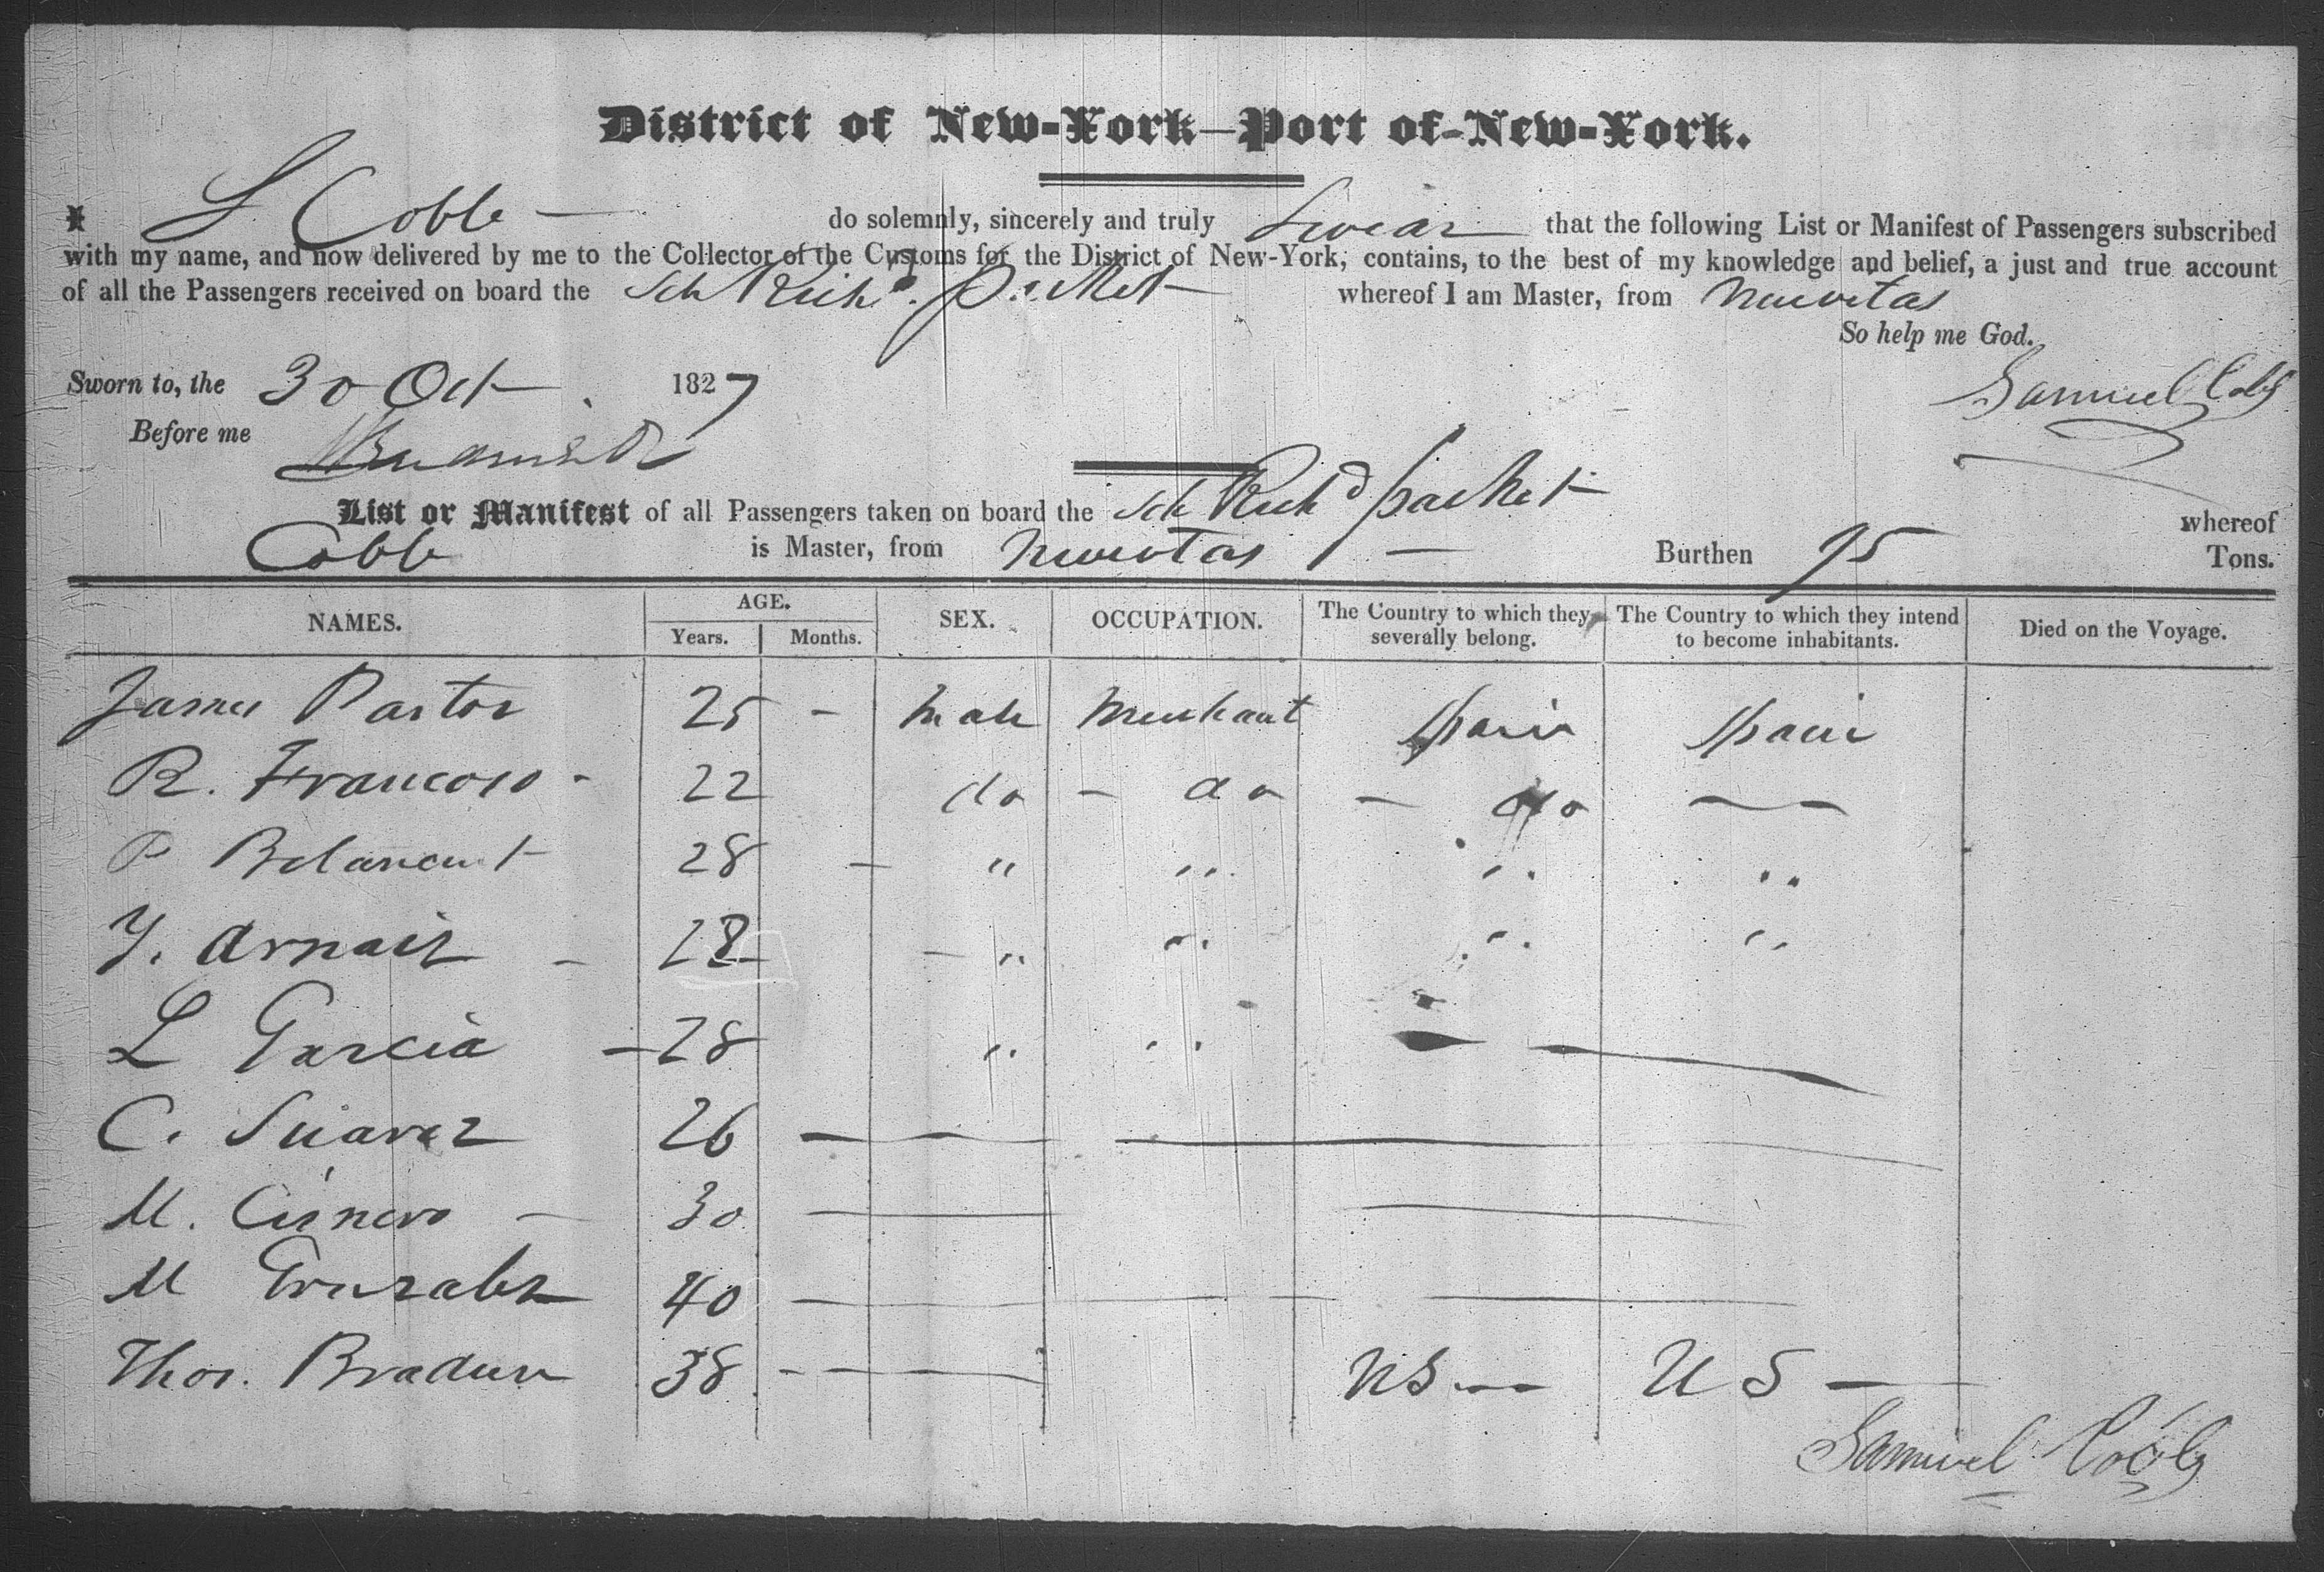 District of New-York—Port of New-York.
I S Cobb — do solemnly, sincerely and truly Swear that the following List or Manifest of Passengers subscribed
with my name, and now delivered by me to the Collector of the Customs for the District of New-York, contains, to the best of my knowledge and belief, a just and true account
of all the Passengers received on board the Sch Richd. Packet whereof I am Master, from Nuevitas
So help me God.
Sworn to, the 30 Oct 1827 Samuel Cobb
Before me
List or Manifest of all Passengers taken on board the Sch Richd packet whereof
Cobb is Master, from Nuevitas — Burthen 95 Tons.
NAMES. AGE. SEX. OCCUPATION. The Country to which they severally belong. The Country to which they intend to become inhabitants. Died on the Voyage.
Years. Months.
James Pastor 25 - Male Merchant Spain Spain
R. Francoso - 22 do - do - do — —
P Betancourt 28 - " " " "
Y. Arnaiz - 28 - " " " "
L Garcia - 28 " "
C. Suarez 26
M. Cisnero - 30
M Gonzalez 40
Thos. 38 US — US —
Samuel Cobb